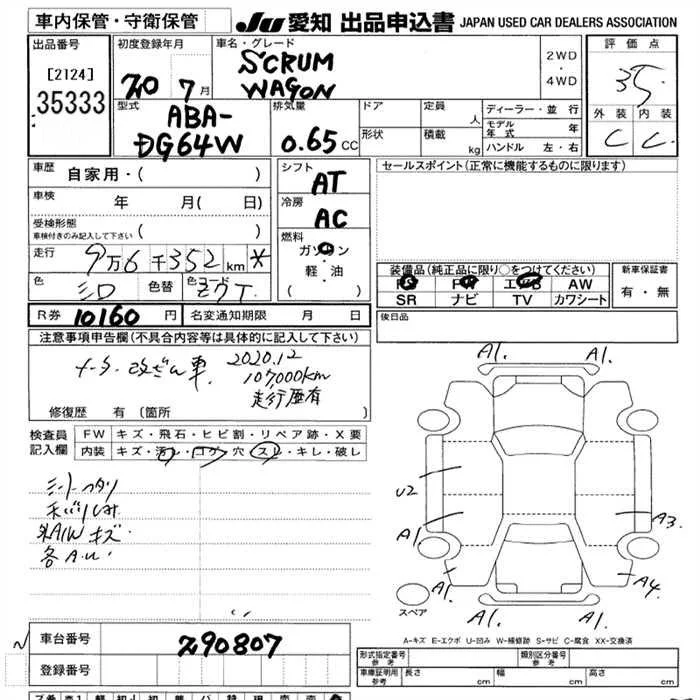 車内保管・守衛保管
JU 愛知 出品申込書 JAPAN USED CAR DEALERS ASSOCIATION
出品番号
[2124]
35333
初度登録年月
20 7月
車名・グレード
SCRUM
WAGON
2WD
・
4WD
評価点
3.5
外装 内装
C C
型式
ABA-
DG64W
排気量
0.65 CC
ドア
形状
定員 人
積載 kg
ディーラー・並行
モデル年式 年
ハンドル 左・右
車歴 自家用・( )
車検 年 月( 日)
受検形態
車検付きのみ記入して下さい ( )
走行 9万6千352km *
色 シロ 色替 色コード Z7T
シフト AT
冷房 AC
燃料
ガソリン
・
軽・油
( )
セールスポイント(正常に機能するものに限ります)
装備品(純正品に限り○をつけてください)
PS PW エアB AW
SR ナビ TV カワシート
新車保証書
有・無
R券 10160 円 名変通知期限 月 日
後日品
注意事項申告欄(不具合内容等は具体的に記入して下さい)
メーター改ざん車 2020.12
107,000km
走行歴有
修復歴 有 〔箇所 〕
検査員
記入欄
FW キズ・飛石・ヒビ割・リペア跡・X要
内装 キズ・汚レ・コゲ・穴・スレ・キレ・破レ
シートヘタリ
天バリしみ
外A/Wキズ
各A.U.
A1. A1.
U2
A1 A3.
A1 A4.
A1. A1.
スペア
A-キズ E-エクボ U-凹み W-補修跡 S-サビ C-腐食 XX-交換済
車台番号 290807
登録番号
形式指定番号 参考
類別区分番号 参考
車庫証明用 参考 長さ cm 幅 cm 高さ cm